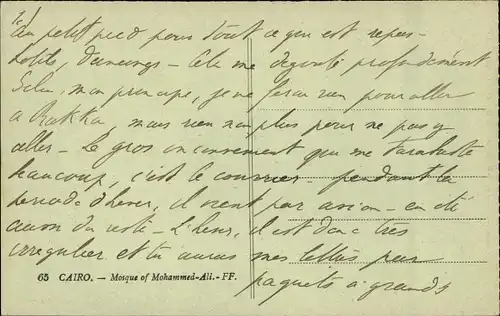 un petit pied pour tout ce qui est
dancings - Cela me dégoûte profondément
Selon mon principe, je ne ferai rien pour aller
à Rakka, mais rien non plus pour ne pas y
aller - Le gros inconvénient qui me
beaucoup, c'est le courrier pendant la
période d'hiver, il vient par avion - en été
aussi du reste - L'hiver, il est donc très
irrégulier et tu auras mes lettres par
paquets à grands
65 CAIRO. — Mosque of Mohammed-Ali. - FF.